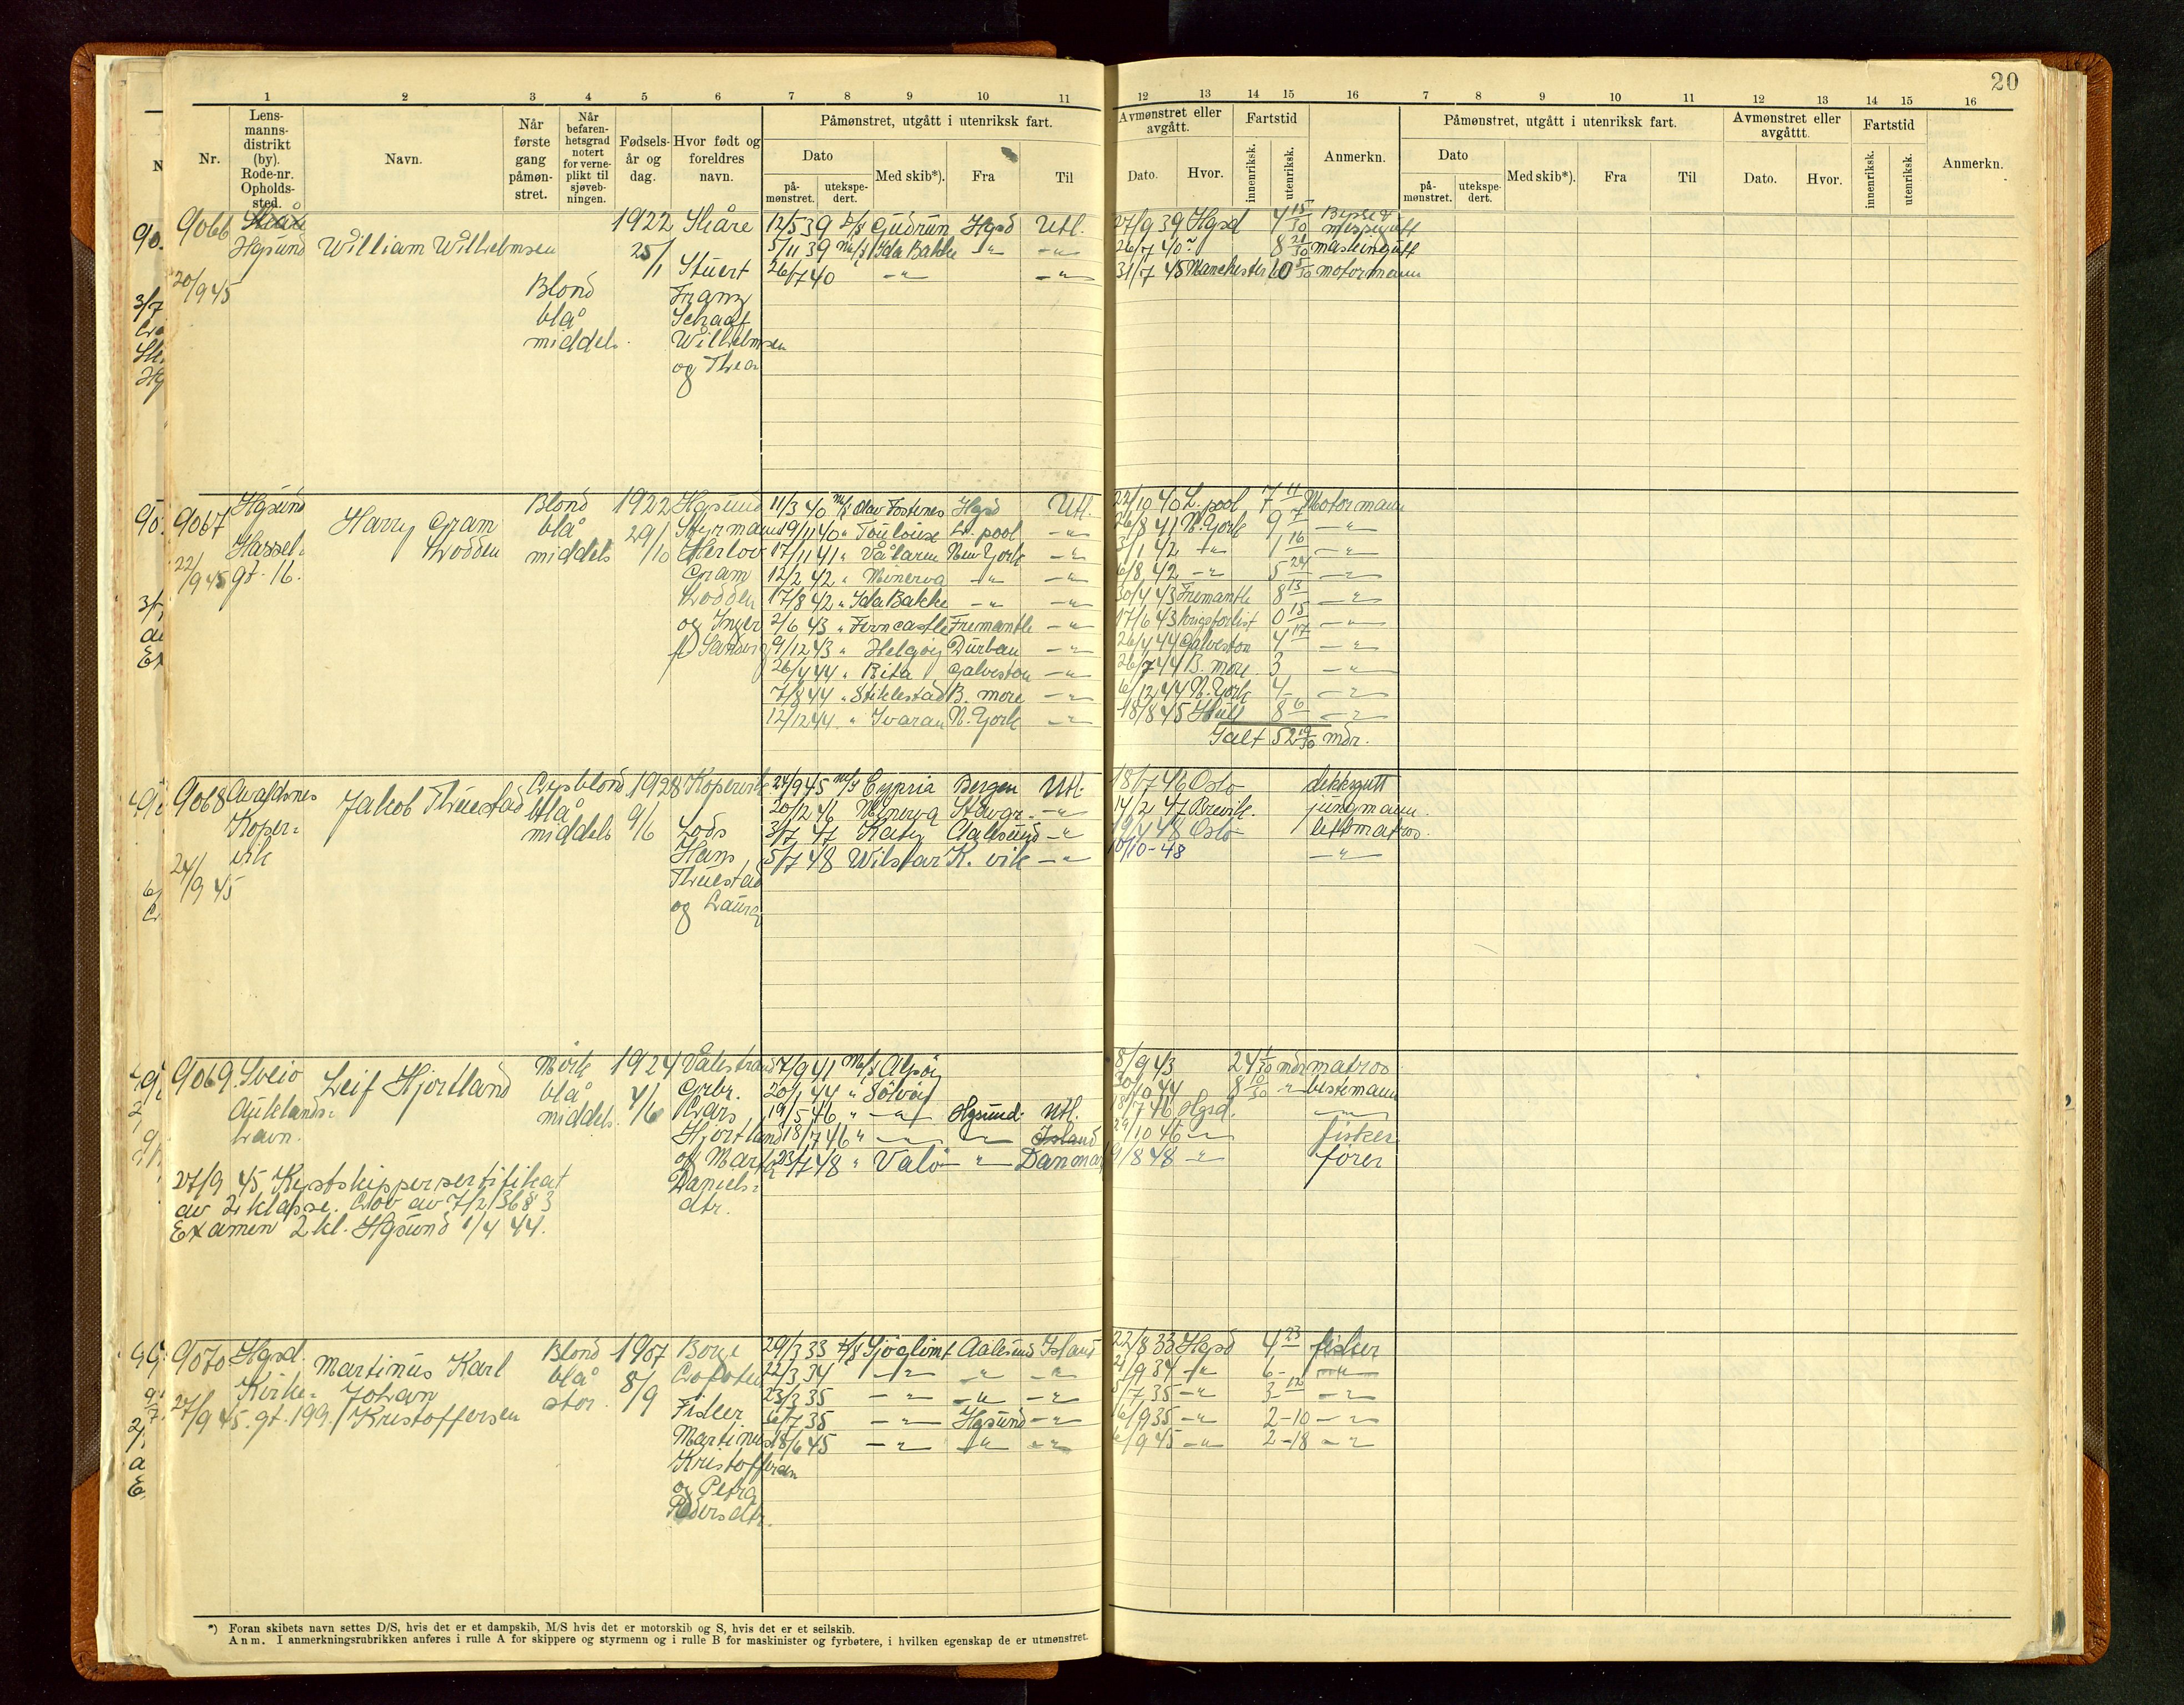 20
1 2 3 4 5 6 7 8 9 10 11 12 13 14 15 16 7 8 9 10 11 12 13 14 15 16
Nr. Lensmanns-distrikt (by). Rode-nr. Opholds-sted. Navn. Når første gang påmøn-stret. Når befaren-hetsgrad notert for verne-plikt til sjøveb-ningen. Fødsels-år og dag. Hvor født og foreldres navn.
Påmønstret, utgått i utenriksk fart. Dato på-mønstret. utekspe-dert. Med skib*). Fra Til
Avmønstret eller avgått. Dato. Hvor. Fartstid innenriksk. utenriksk. Anmerkn.
Påmønstret, utgått i utenriksk fart. Dato på-mønstret. utekspe-dert. Med skib*). Fra Til
Avmønstret eller avgåttt. Dato. Hvor. Fartstid innenriksk. utenriksk. Anmerkn.
9066 Skåre 1922 Skåre 12/5 39 D/S Gudrun Hgsd Utl. 27/9 39 Hgsd 4 15/30 Bysse & messegutt
Hgsund William Wilhelmsen 25/1 5/11 39 M/S Ida Bakke -"- -"- 26/7 40 -"- 8 21/30 maskingutt
20/9 45 Stuert 26/7 40 -"- -"- 31/7 45 Manchester 60 5/30 motormann
Blond Franz
blå Schaaf
middels. Wilhelmsen
og Thea
9067 Hgsund Harry Gram Lodden Blond 1922 Hgsund 11/3 40 M/S Olav Fostenes Hgsd Utl. 22/10 40 L. pool 7 11 Motormann
blå 29/10 Styrmann 19/11 40 " Toulouse L. pool -"- 26/8 41 N. York 9 7 -"-
Hassel-gt. 16. middels Herlov 17/11 41 " Vålaren New York -"- 3/1 42 -"- 1 16 -"-
22/9 45 Gram 12/2 42 " Minerva -"- -"- 6/8 42 -"- 5 24 -"-
Lodden 17/8 42 " Ida Bakke -"- -"- 30/4 43 Fremantle 8 13 -"-
og Inger 2/6 43 " Ferncastle Fremantle -"- 17/6 43 krigsforlist 0 15 -"-
9/12 43 " Helgøy Durban -"- 26/4 44 Galveston 4 17 -"-
26/4 44 " Rita Galveston -"- 26/7 44 B. more 3 -"-
7/8 44 " Stiklestad B. more -"- 6/12 44 N. York 4- -"-
12/12 44 " Ivaran N. York -"- 18/8 45 Hull 8 6 -"-
Ialt 52 19/30 mdr.
9068 Avaldsnes Jakob Thuestad 1928 Kopervik 24/9 45 M/S Cypria Bergen Utl. 18/7 46 Oslo dekksgutt
Koper- blå 9/6 20/12 46 Minerva Stavgr. -"- 14/2 47 Brevik jungmann
vik middels Lods 3/7 47 Katy Aalesund -"- 19/4 48 Oslo lettmatros.
24/9 45 Hans 5/7 48 Wilstar K. vik -"- 10/10-48 -"-
Thuestad
og Laura
9069 Sveio Leif Hjortland Mörk 1924 Vålestrand 7/9 41 M/S Alsøy 8/9 43 24 1/30 mdr matros
Auklands- blå 4/6 Grbr. 20/1 44 " Sölvöy 30/10 44 8 10/30 " bestemann
havn. middels. Lars 19/5 46 " -"- Hgsund. Utl. 18/7 46 Hgsd. -"-
Hjortland 18/7 46 " -"- -"- Island 29/10 46 -"- fisker
og Marta 23/7 48 " Valö -"- Danmark 9/8 48 -"- fører
27/9 45 Kystskippersertifikat Daniels-
av 2. klasse. Lov av 7/2 1936 § 3 dtr.
Examen 2 kl. Hgsund 1/4 44.
9070 Hgsd. Martinus Karl Blond 1907 Borge 29/3 33 D/S Sjöglimt Aalesund Island 22/8 33 Hgsd 4 23 fisker
Kirke- Johan blå 8/9 Lofoten 22/3 34 -"- -"- -"- 21/9 34 -"- 6- -"-
27/9 45. gt. 199. Kristoffersen stor. Fisker 23/3 35 -"- -"- -"- 5/7 35 -"- 3 12 -"-
6/7 35 -"- Hgsund -"- 16/9 35 -"- 2-10 -"-
Martinus 18/6 45 -"- -"- -"- 6/9 45 -"- 2-18 -"-
Kristoffersen
og Petra
Pedersdtr.
*) Foran skibets navn settes D/S, hvis det er et dampskib, M/S hvis det er motorskib og S, hvis det er et seilskib.
Anm. I anmerkningsrubrikken anføres i rulle A for skippere og styrmenn og i rulle B for maskinister og fyrbøtere, i hvilken egenskap de er utmønstret.